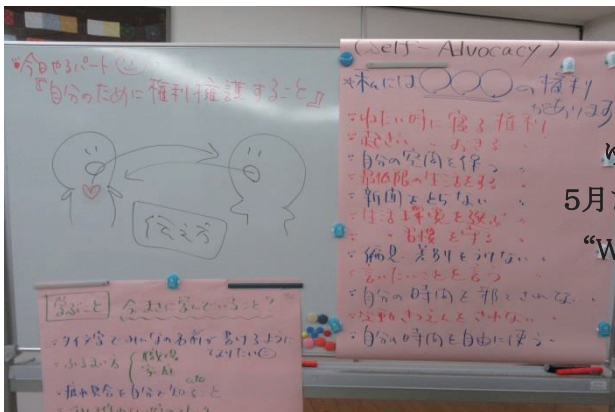 ・今日やるパート
『自分のために権利擁護すること』
伝え方
(Self-Advocacy)
*私には〇〇〇の権利
があります
・ねたい時に寝る権利
・自分の空間を保つ 〃
・最低限の生活をする 〃
・新聞をとらない 〃
・生活環境を選ぶ 〃
・〃 習慣を守る 〃
・偏見・差別をうけない 〃
・言いたいことを言う 〃
・自分の時間を邪魔されない 〃
・自分の時間を自由に使う 〃
学ぶこと 今まさに学んでいること?
・タイ文字でみんなの名前が書けるように
なりたい
・ふるまい方 職場 家庭 etc
・疲れ具合を自分で知ること
5月
“W